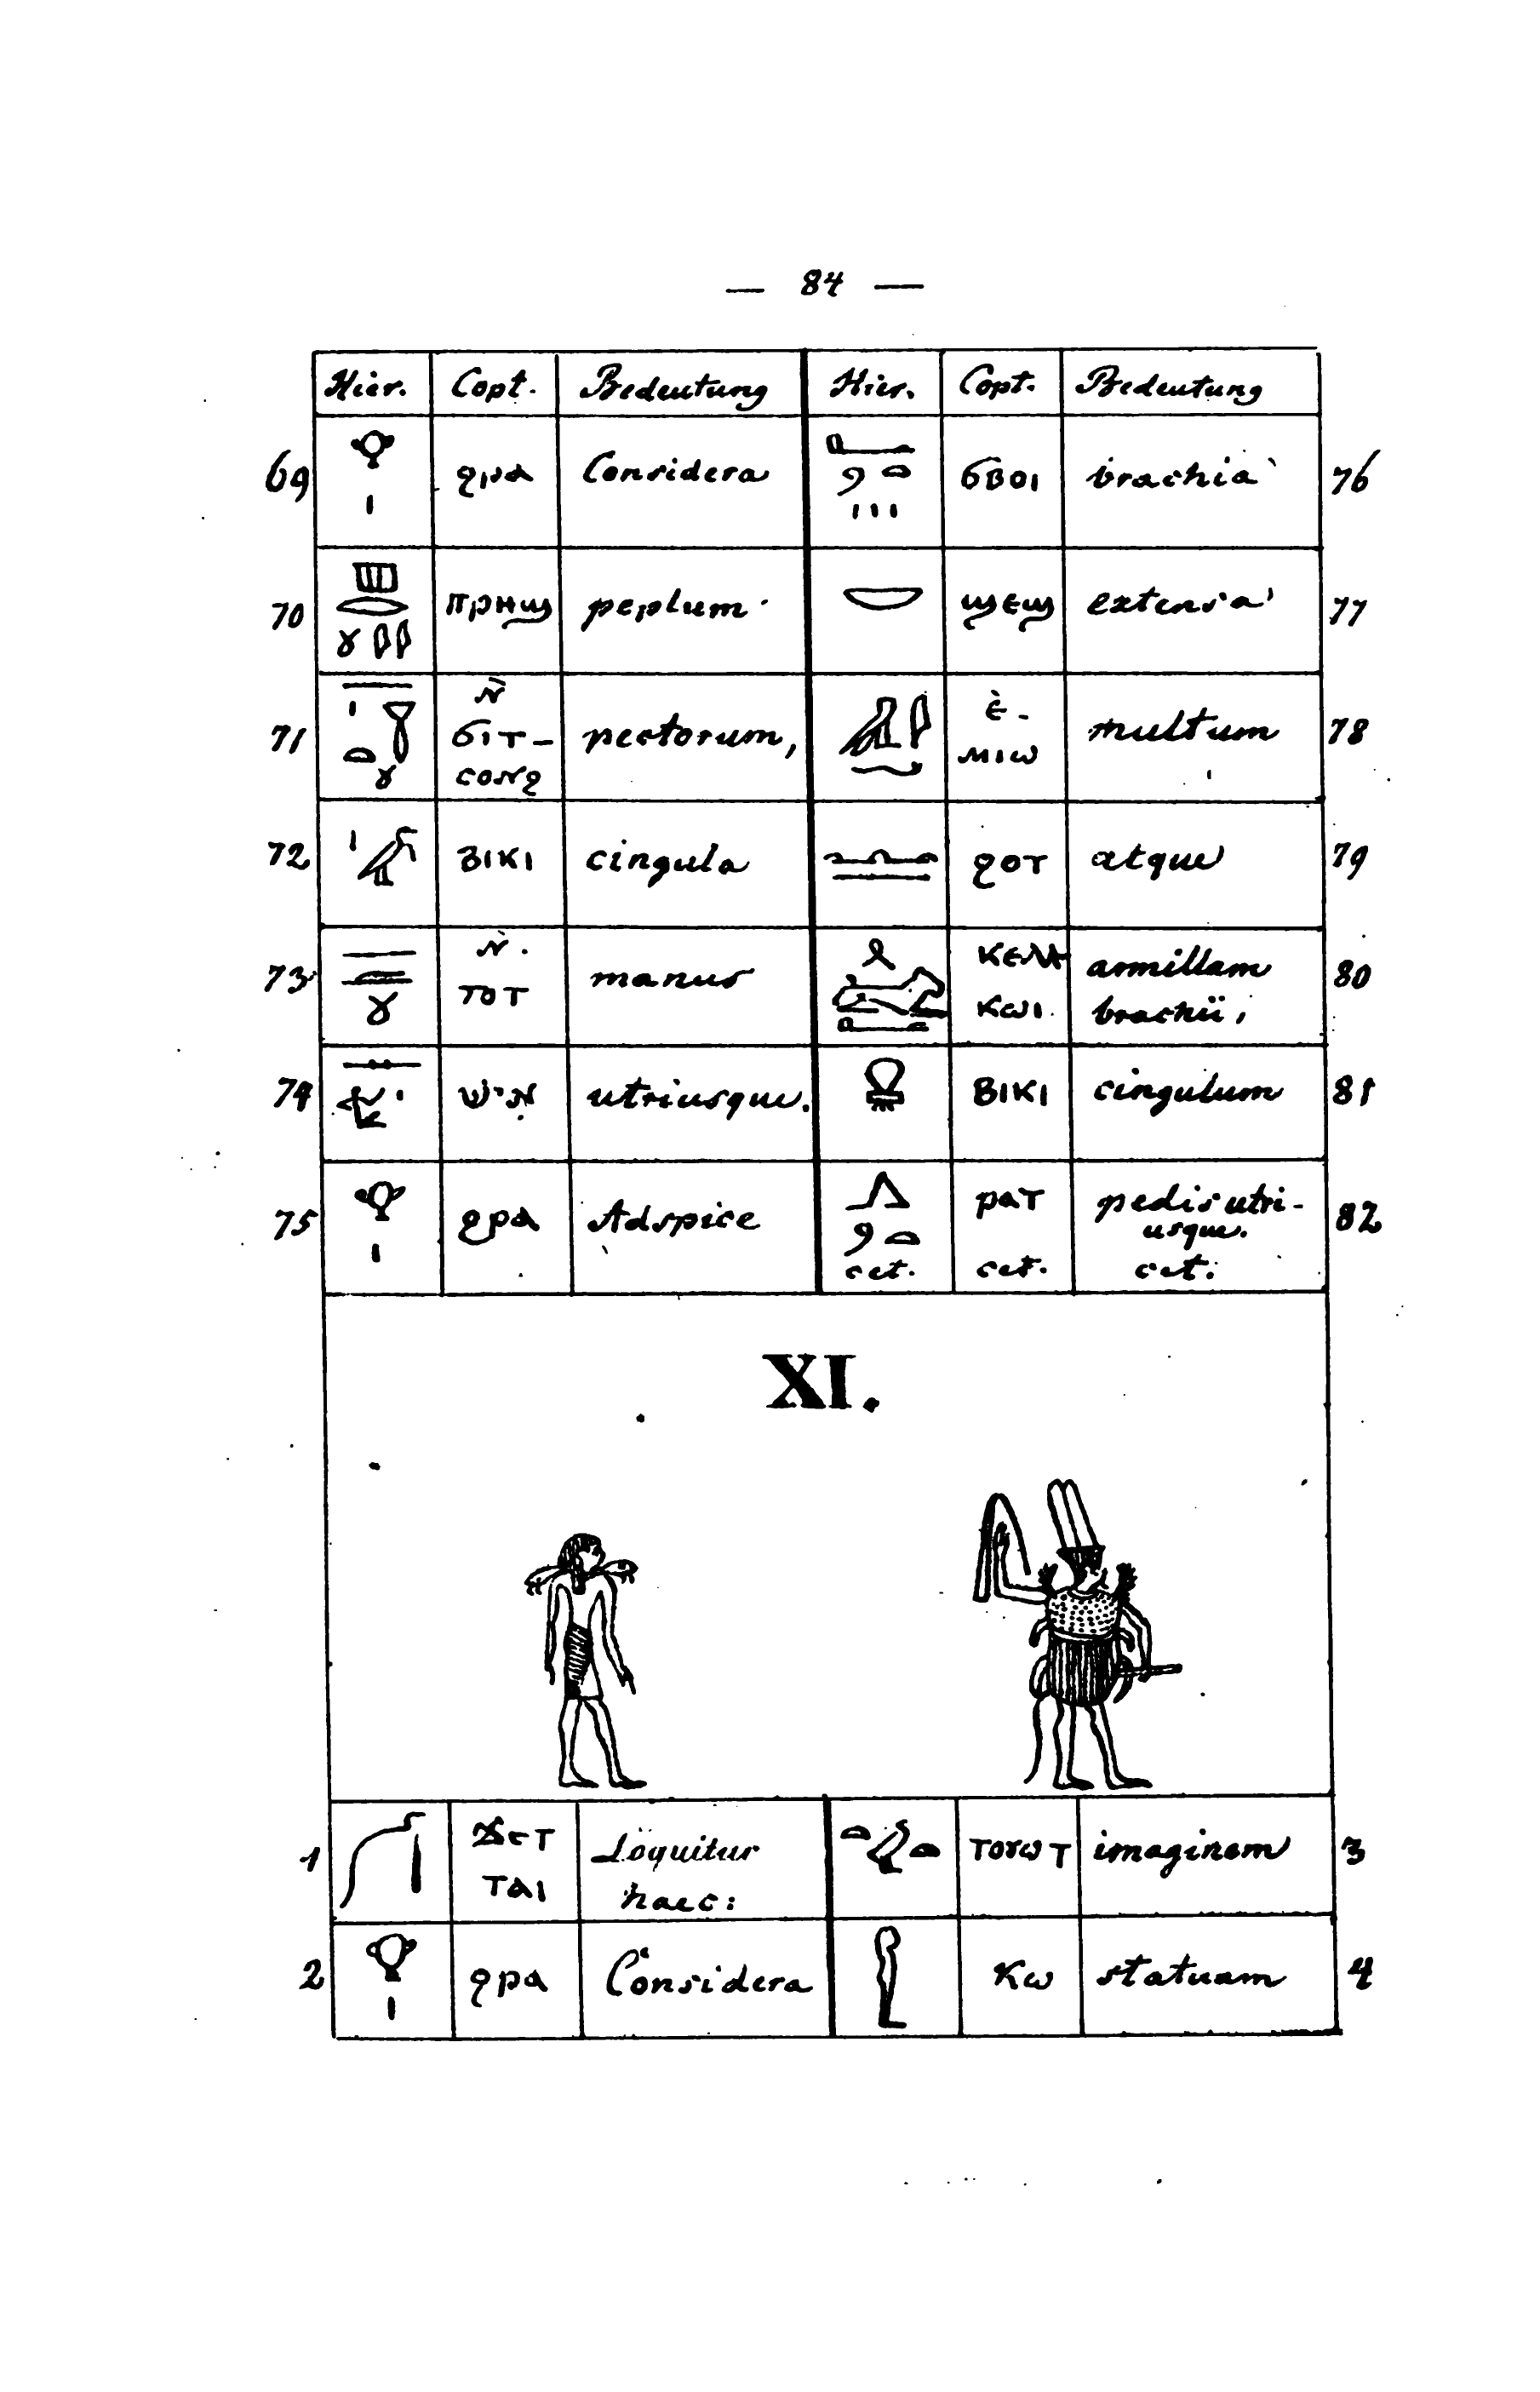 — 84 —
Hier. Copt. Bedeutung Hier. Copt. Bedeutung
69 ϩρα Considera ϭβοι brachia 76
70 πρηϣ peplum ϣεϣ extensa 77
71 ǹ ϭιτ- ⲥⲟⲛϩ pectorum, ὲ- ⲙⲓⲱ multum 78
72 ⲃⲓⲕⲓ cingula ϩⲟⲧ atque 79
73 ⲛ̀ ⲧⲟⲧ manus ⲕⲱⲓ armillam brachii, 80
74 איש utriusque. ⲃⲓⲕⲓ cingulum 81
75 ϩⲣⲁ Adspice ⲣⲁⲧ pedis utri-
usque. 82
cet. cet. cet.
XI.
1 ⲧⲁⲓ Loquitur haec: ⲧⲟⲩⲱⲧ imaginem 3
2 ϩⲣⲁ Considera ⲕⲱ statuam 4